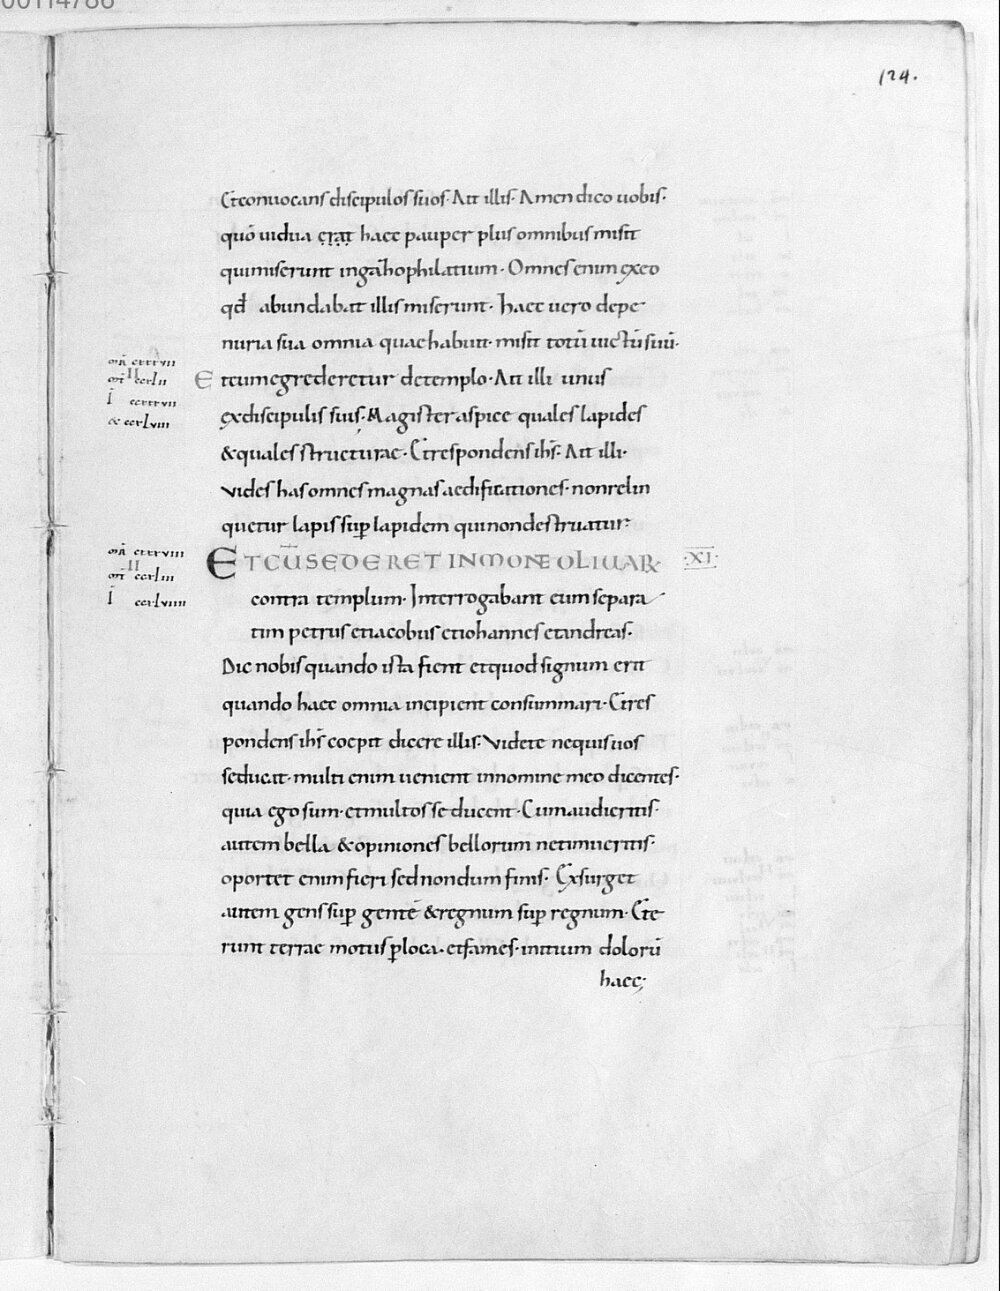 00114786
124.
Et conuocans discipulos suos· Ait illis· Amen dico uobis·
quō uidua erat haec pauper plus omnibus misit
qui miserunt in gazhophilatium· Omnes enim exeo
qđ abundabat illis miserunt· haec uero depe
nuria sua omnia quae habuit· misit totū uictū suū·
mā cxcvii
mt ccxlii
l ccxcvii
& ccxlviii
Et cum egrederetur de templo· Ait illi unus
ex discipulis suis· Magister aspice quales lapides
& quales structurae· Et respondens ihs· Ait illi·
Vides has omnes magnas aedificationes· non relin
quetur lapis sup lapidem qui non destruatur·
Et cū sederet in monte oliuar· XI·
contra templum· Interrogabant eum separa
tim petrus et iacobus et iohannes et andreas·
Dic nobis quando ista fient et quod signum erit
quando haec omnia incipient consummari· Et res
pondens ihs coepit dicere illis· Videte ne quis uos
seducat· multi enim uenient in nomine meo dicentes·
quia ego sum· et multos seducent· Cum audieritis·
autem bella & opiniones bellorum ne timueritis·
oportet enim fieri sed nondum finis· Exsurget
autem gens sup gentē & regnum sup regnum· Et e
runt terrae motus p loca· et fames· initium dolorū
haec;